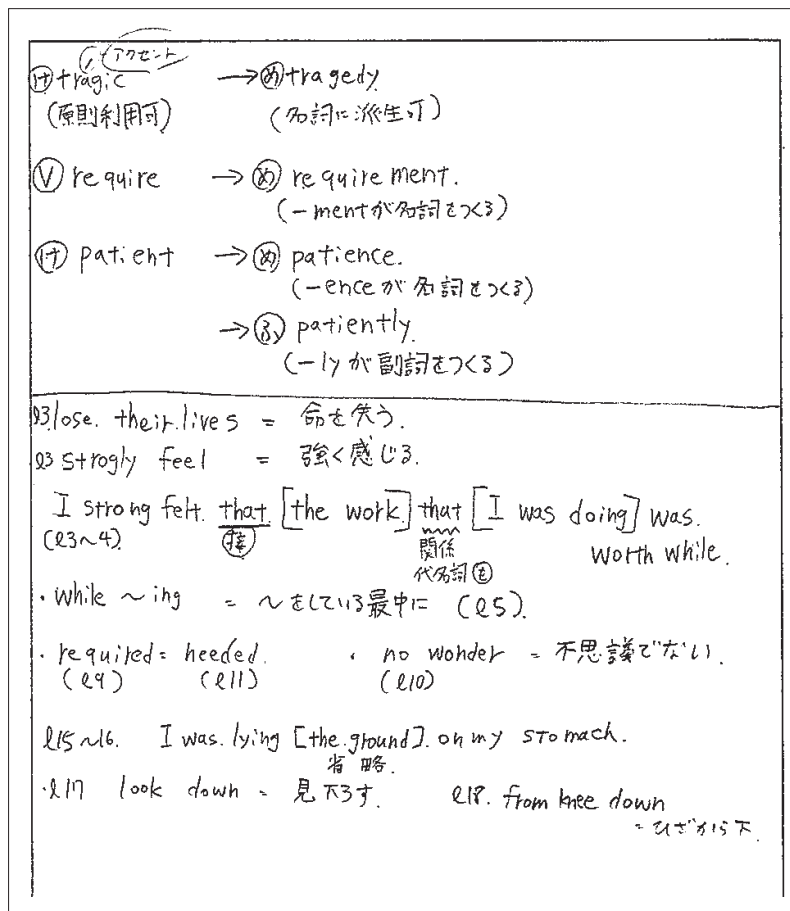 アクセント
㋘tragic → ㋱tragedy.
(原則利用可) (名詞に派生可)
Ⓥ require → ㋱ requirement.
(-mentが名詞をつくる)
㋘ patient → ㋱ patience.
(-enceが名詞をつくる)
→ ㋫ patiently.
(-lyが副詞をつくる)
l3. lose. their. lives = 命を失う.
l3 strogly feel = 強く感じる.
I strong felt. that. [the work.] that [I was doing] was.
(l3~4). 接 関係 worth while.
代名詞 を
・while ~ing = ~をしている最中に (l5).
・required = needed. ・no wonder = 不思議でない.
(l9) (l11) (l10)
l15~16. I was. lying [the. ground]. on my stomach.
省略.
・l17 look down = 見下ろす. l18. from knee down
= ひざから下.